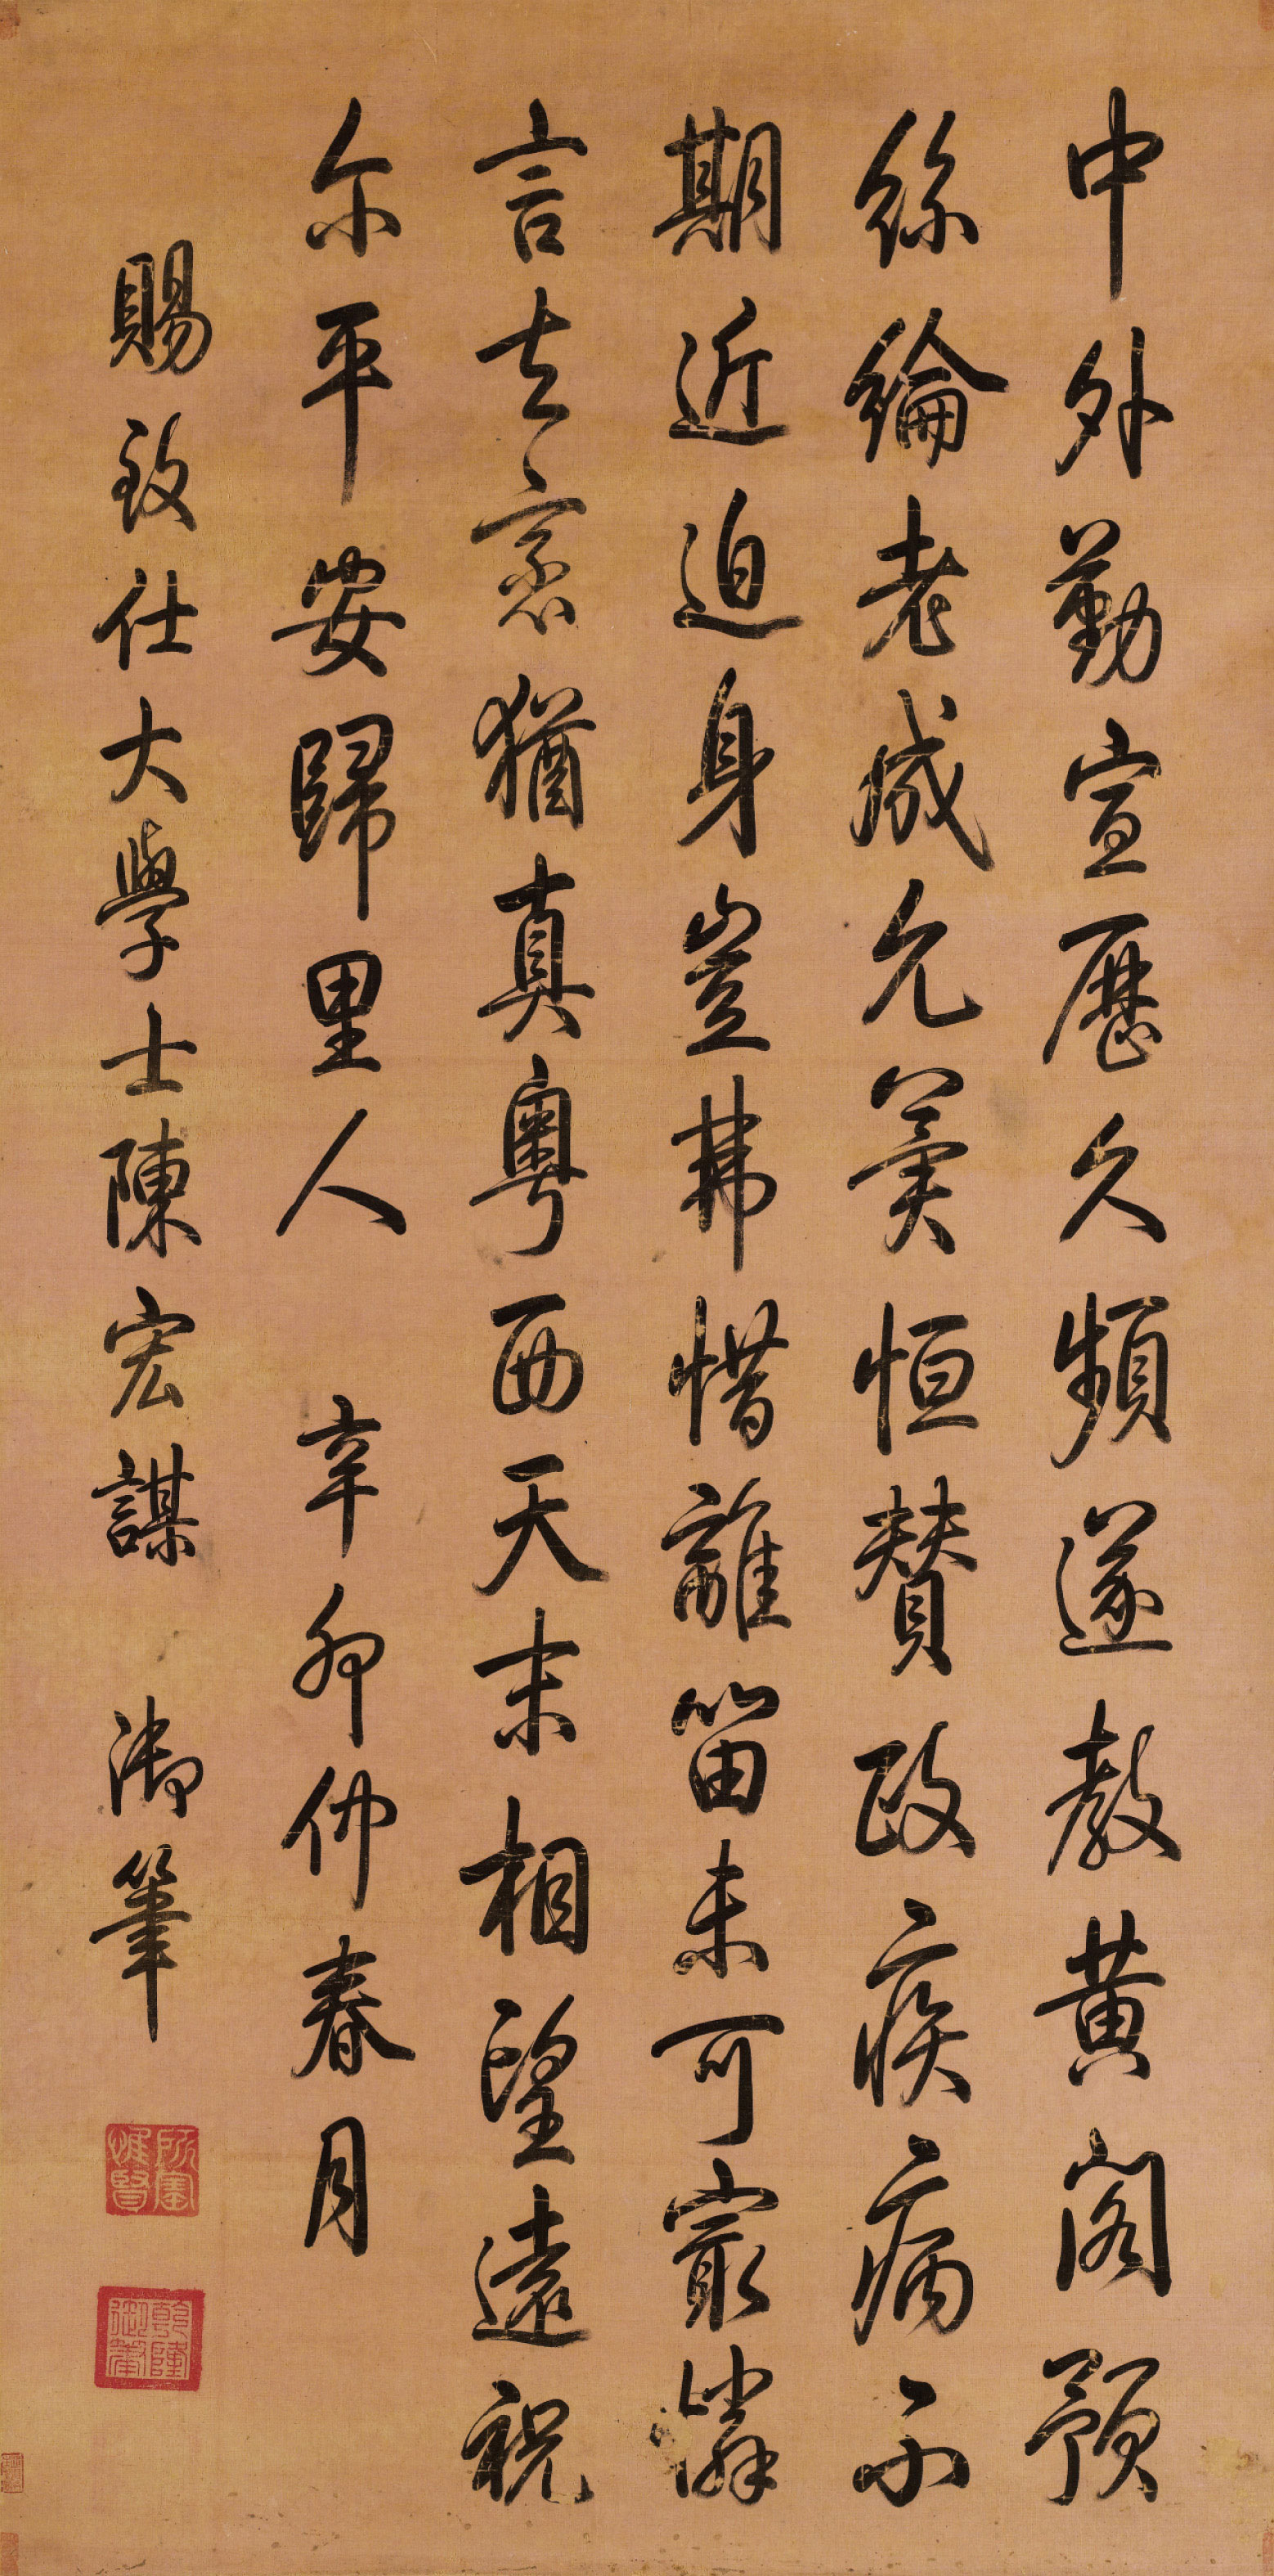 中外勤宣歷久頻遂教黃閣預
絲綸老成允冀恒贊政疾病不
期近迫身豈弗惜離留未可最憐
言去意猶真粵西天末相望遠祝
尔平安歸里人 辛卯仲春月
賜致仕大學士陳宏謀 御筆
所寶惟賢
乾隆御筆